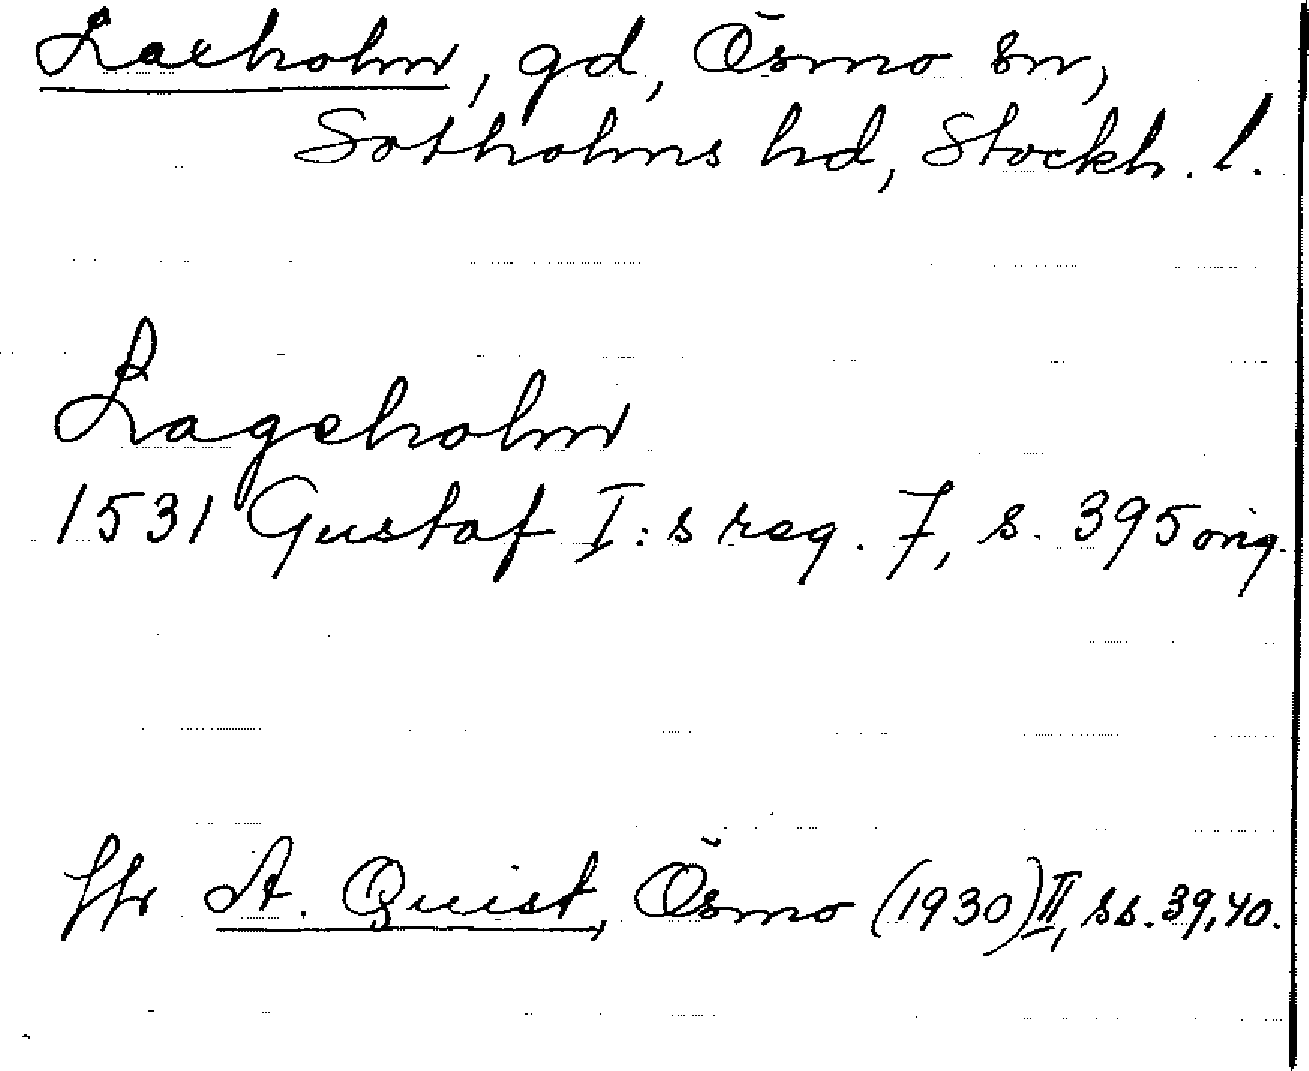 Laxholm, gd, Ösmo sn,
Sotholms hd, Stockh. l.
Lageholm
1531 Gustaf I:s reg. 7, s. 395 orig.
Jfr A. Quist, Ösmo (1930) II, ss. 39, 40.